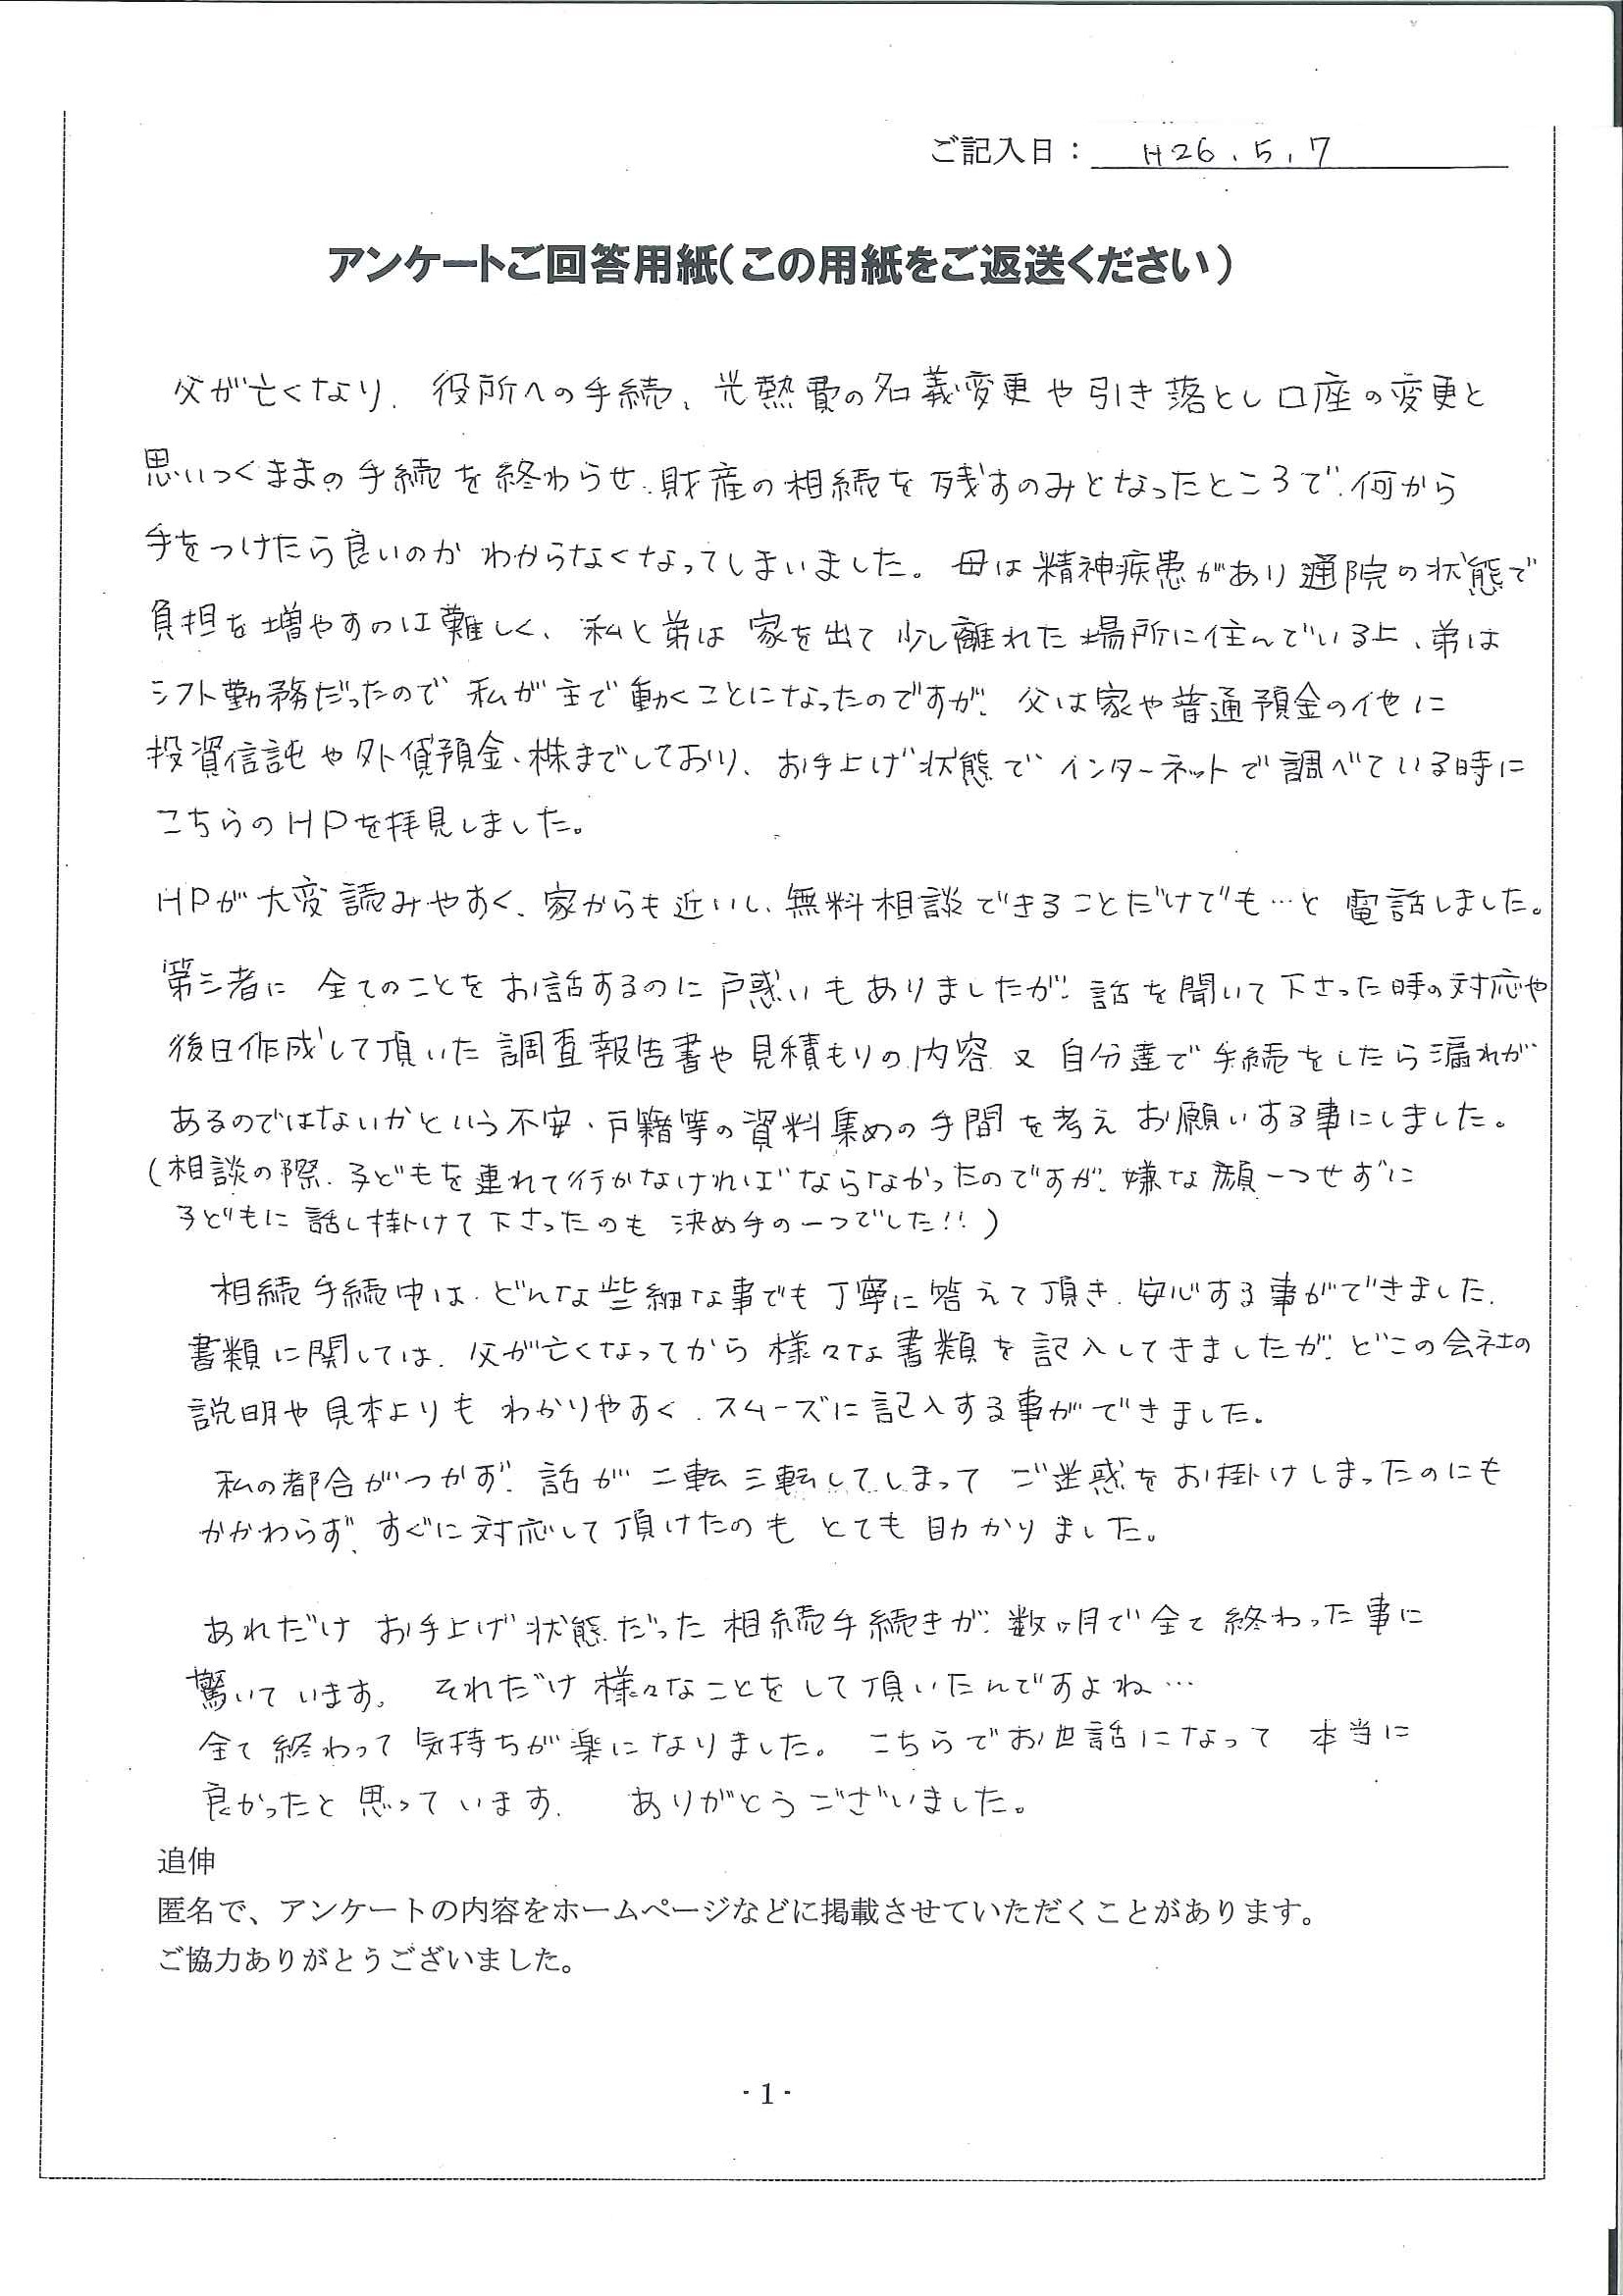 ご記入日： H26.5.7
アンケートご回答用紙（この用紙をご返送ください）
父が亡くなり、役所への手続、光熱費の名義変更や引き落とし口座の変更と
思いつくままの手続を終わらせ、財産の相続を残すのみとなったところで、何から
手をつけたら良いのか わからなくなってしまいました。母は精神疾患があり通院の状態で
負担を増やすのは難しく、私と弟は家を出て少し離れた場所に住んでいる上、弟は
シフト勤務だったので私が主で動くことになったのですが、父は家や普通預金の他に
投資信託や外貨預金、株までしており、お手上げ状態でインターネットで調べている時に
こちらのHPを拝見しました。
HPが大変読みやすく、家からも近いし、無料相談できることだけでも…と電話しました。
第三者に全てのことをお話するのに戸惑いもありましたが、話を聞いて下さった時の対応や
後日作成して頂いた調査報告書や見積もりの内容、又自分達で手続をしたら漏れが
あるのではないかという不安、戸籍等の資料集めの手間を考えお願いする事にしました。
（相談の際、子どもを連れて行かなければならなかったのですが、嫌な顔一つせずに
子どもに話し掛けて下さったのも決め手の一つでした!!）
相続手続中は、どんな些細な事でも丁寧に答えて頂き、安心する事ができました。
書類に関しては、父が亡くなってから様々な書類を記入してきましたが、どこの会社の
説明や見本よりもわかりやすく、スムーズに記入する事ができました。
私の都合がつかず、話が二転三転してしまってご迷惑をお掛けしまったのにも
かかわらず、すぐに対応して頂けたのもとても助かりました。
あれだけお手上げ状態だった相続手続きが、数ヶ月で全て終わった事に
驚いています。それだけ様々なことをして頂いたんですよね…
全て終わって気持ちが楽になりました。こちらでお世話になって本当に
良かったと思っています。 ありがとうございました。
追伸
匿名で、アンケートの内容をホームページなどに掲載させていただくことがあります。
ご協力ありがとうございました。
- 1 -